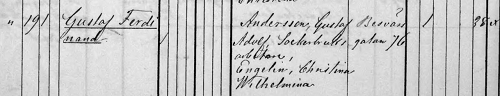 " 191 Gustaf Ferdi Andersson, Gustaf 1 28
nand Adolf, Sockerbruks gatan 76
arbetare,
Engelin, Christina
Wilhelmina